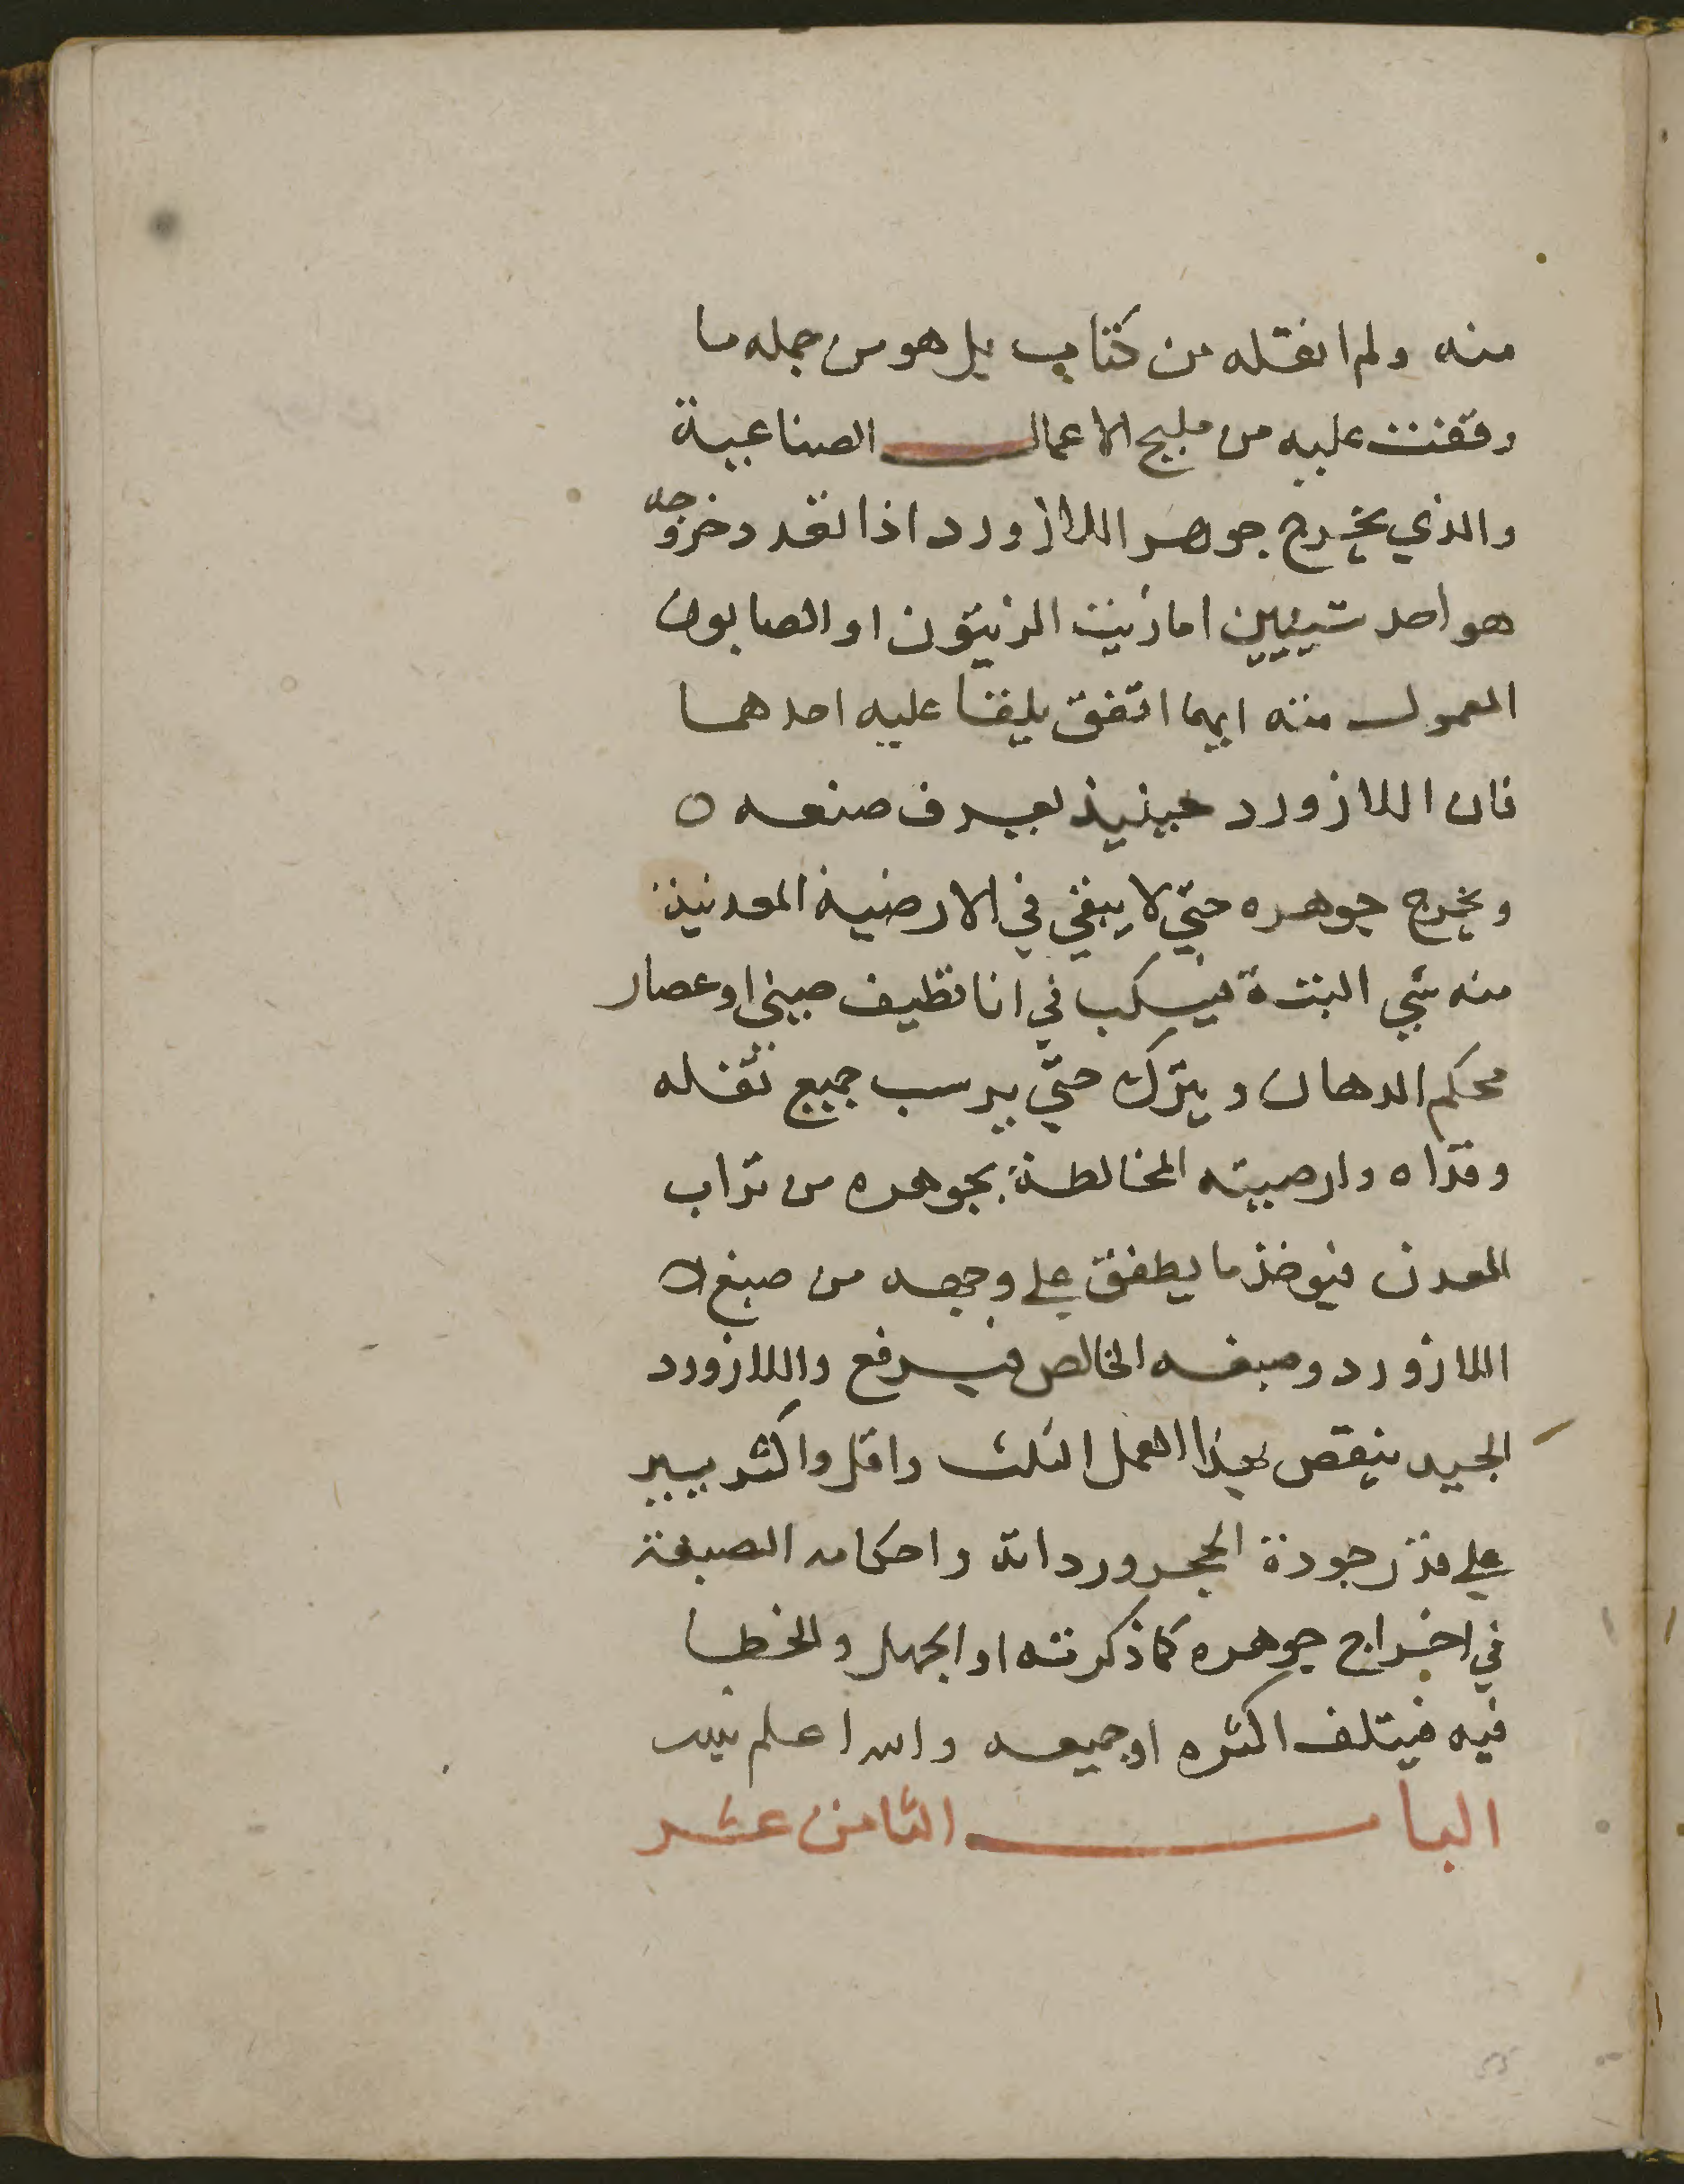 منه ولم انقله من كتاب بل هو من جمله ما
وقفت عليه من مليح الاعمال الصناعية
والذي يخرج جوهر اللازورد اذا تعدد خروجه
هو احد شييين اما زيت الزيتون او الصابون
المعمول منه ايهما اتفق يلقا عليه احدهما
فان اللازورد حينيذ يعرف صنعه ٥
ويخرج جوهره حتي لا يبقي في الارضية المعدنية
منه شي البتة فيسكب في انا نظيف صيني او عصار
محكم الدهان ويترك حتي يرسب جميع ثقله
وقذاه وارضيته المخالطة بجوهره من تراب
المعدن فيوخذ ما يطفق علي وجهه من صبغ
اللازورد وصبغه الخالص فيرفع واللازورد
الجيد ينقص بهذا العمل الثلث واقل واكثر بيسير
علي قدر جودة الحجر ورداته واحكام الصبغة
في اخراج جوهره كما ذكرته او الجهل والخطا
فيه فيتلف اكثره او جميعه والله اعلم
البا ب الثامن عشر